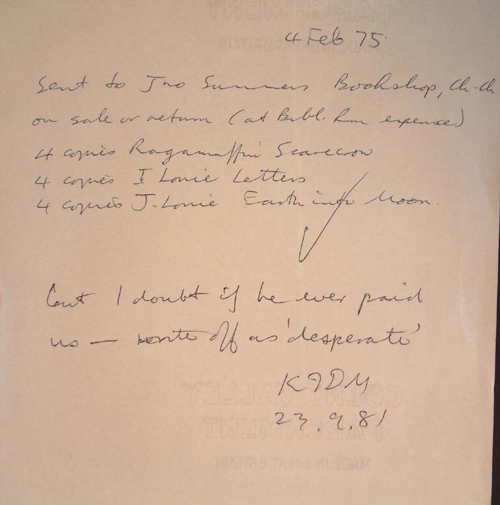 PARCHMENT
4 Feb 75
Sent to Jno Summers Bookshop, Ch-Ch
on sale or return (at Bibl. Rm expense)
4 copies Ragamuffin Scarecrow
4 copies I Lonie Letters
4 copies J. Lonie Earth into Moon.
but I doubt if he ever paid
us — write off as 'desperate'
KIDM
VALLEY
23.9.81
PARCHMENT
MADE IN GREAT BRITAIN